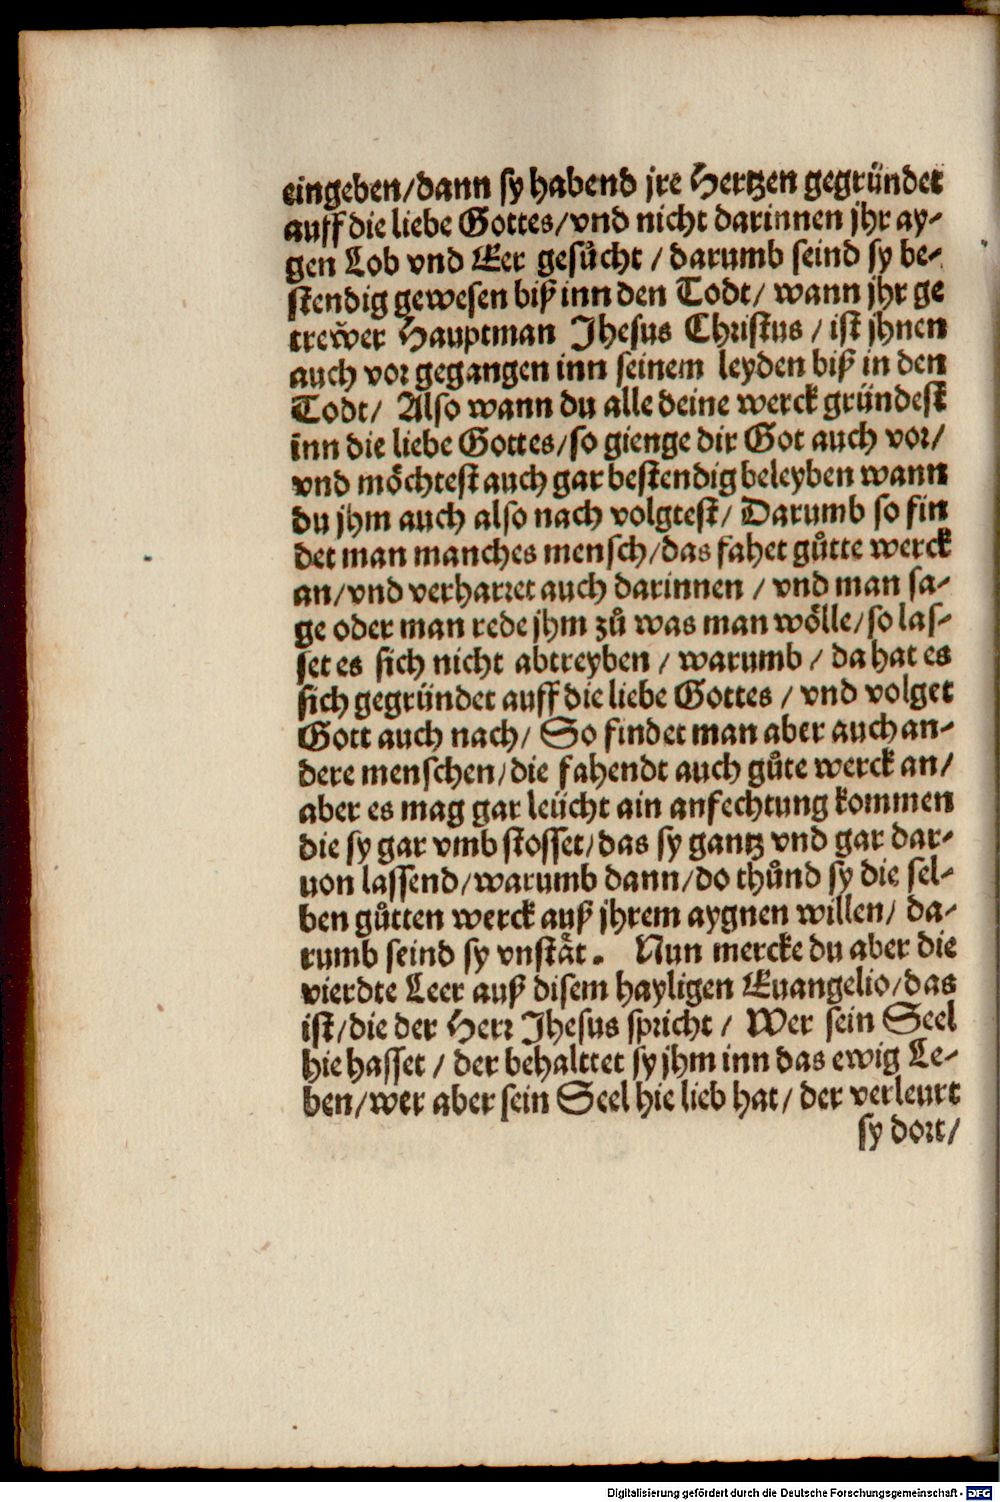 eingeben/dann sy habend jre Hertzen gegründet
auff die liebe Gottes/vnd nicht darinnen jhr ay-
gen Lob vnd Eer gesůcht / darumb seind sy be-
stendig gewesen biß inn den Todt/ wann jhr ge
trewer Hauptman Jhesus Christus / ist jhnen
auch vor gegangen inn seinem leyden biß in den
Todt/ Also wann du alle deine werck gründest
inn die liebe Gottes/so gienge dir Got auch vor/
vnd möchtest auch gar bestendig beleyben wann
du jhm auch also nach volgtest/ Darumb so fin
det man manches mensch/das fahet gůtte werck
an/vnd verharret auch darinnen / vnd man sa-
ge oder man rede jhm zů was man wölle/so las-
set es sich nicht abtreyben / warumb / da hat es
sich gegründet auff die liebe Gottes / vnd volget
Gott auch nach/ So findet man aber auch an-
dere menschen/die fahendt auch gůte werck an/
aber es mag gar leücht ain anfechtung kommen
die sy gar vmb stosset/das sy gantz vnd gar dar-
uon lassend/warumb dann/do thůnd sy die sel-
ben gůtten werck auß jhrem aygnen willen/ da-
rumb seind sy vnstät. Nun mercke du aber die
vierdte Leer auß disem hayligen Euangelio/das
ist/die der Herr Jhesus spricht / Wer sein Seel
hie hasset / der behalttet sy jhm inn das ewig Le-
ben/wer aber sein Seel hie lieb hat/ der verleurt
sy dort/
Digitalisierung gefördert durch die Deutsche Forschungsgemeinschaft - DFG